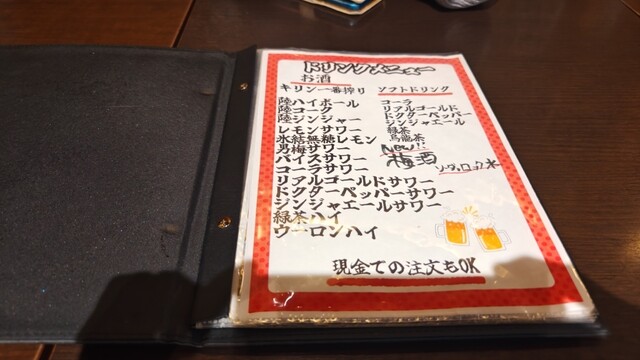 ドリンクメニュー
お酒
キリン一番搾り
陸ハイボール
陸コーク
陸ジンジャー
レモンサワー
氷結無糖レモン
男梅サワー
バイスサワー
コーラサワー
リアルゴールドサワー
ドクターペッパーサワー
ジンジャエールサワー
緑茶ハイ
ウーロンハイ
ソフトドリング
コーラ
リアルゴールド
ドクターペッパー
ジンジャエール
緑茶
烏龍茶
NEW!!
梅酒
ソーダ.ロック.水
現金での注文もOK